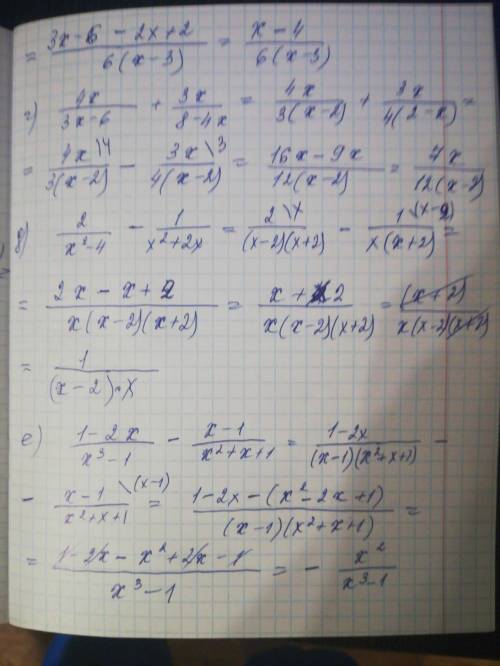 = (3x-6 - 2x+2)/(6(x-3)) = (x-4)/(6(x-3))
г) 4x/(3x-6) + 3x/(8-4x) = 4x/(3(x-2)) + 3x/(4(2-x)) =
= 4x\4/(3(x-2)) - 3x\3/(4(x-2)) = (16x-9x)/(12(x-2)) = 7x/(12(x-2))
д) 2/(x²-4) - 1/(x²+2x) = 2\x/((x-2)(x+2)) - 1\(x-2)/(x(x+2)) =
= (2x-x+2)/(x(x-2)(x+2)) = (x+2)/(x(x-2)(x+2)) = (x+2)/(x(x-2)(x+2))
= 1/((x-2)·x)
е) (1-2x)/(x³-1) - (x-1)/(x²+x+1) = (1-2x)/((x-1)(x²+x+1)) -
- (x-1)\(x-1)/(x²+x+1) = (1-2x-(x²-2x+1))/((x-1)(x²+x+1)) =
= (1-2x-x²+2x-1)/(x³-1) = - x²/(x³-1)